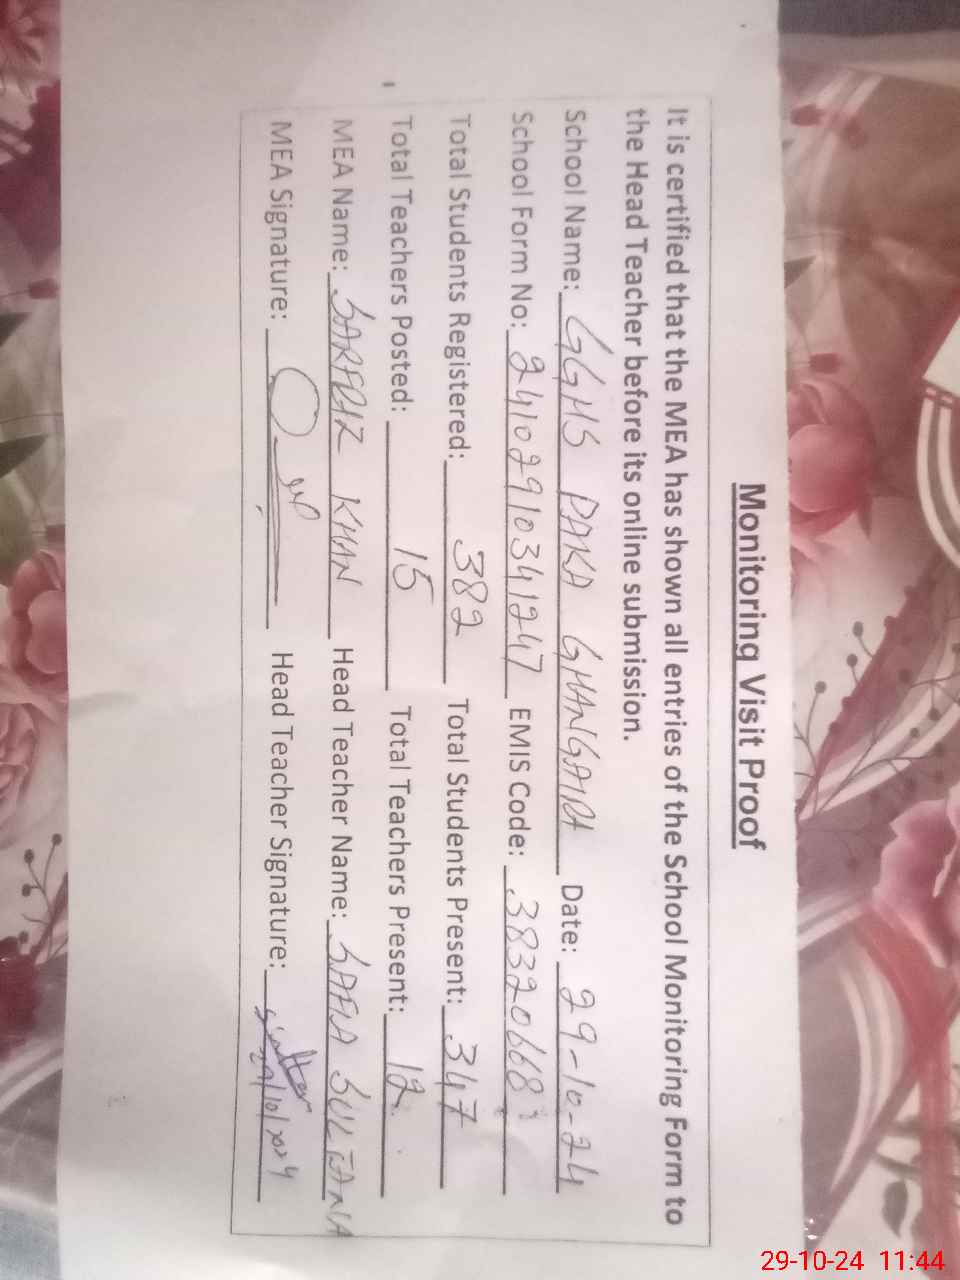 Monitoring Visit Proof
It is certified that the MEA has shown all entries of the School Monitoring Form to
the Head Teacher before its online submission.
School Name: GGHS PAKA GHANGAIRA Date: 29-10-24
School Form No: 24102910341247 EMIS Code: 38320668
Total Students Registered: 382 Total Students Present: 347
Total Teachers Posted: 15 Total Teachers Present: 12
MEA Name: SARFRIZ KHAN Head Teacher Name: SAFIA SULTANA
MEA Signature: Head Teacher Signature: 29/10/2024
29-10-24 11:44